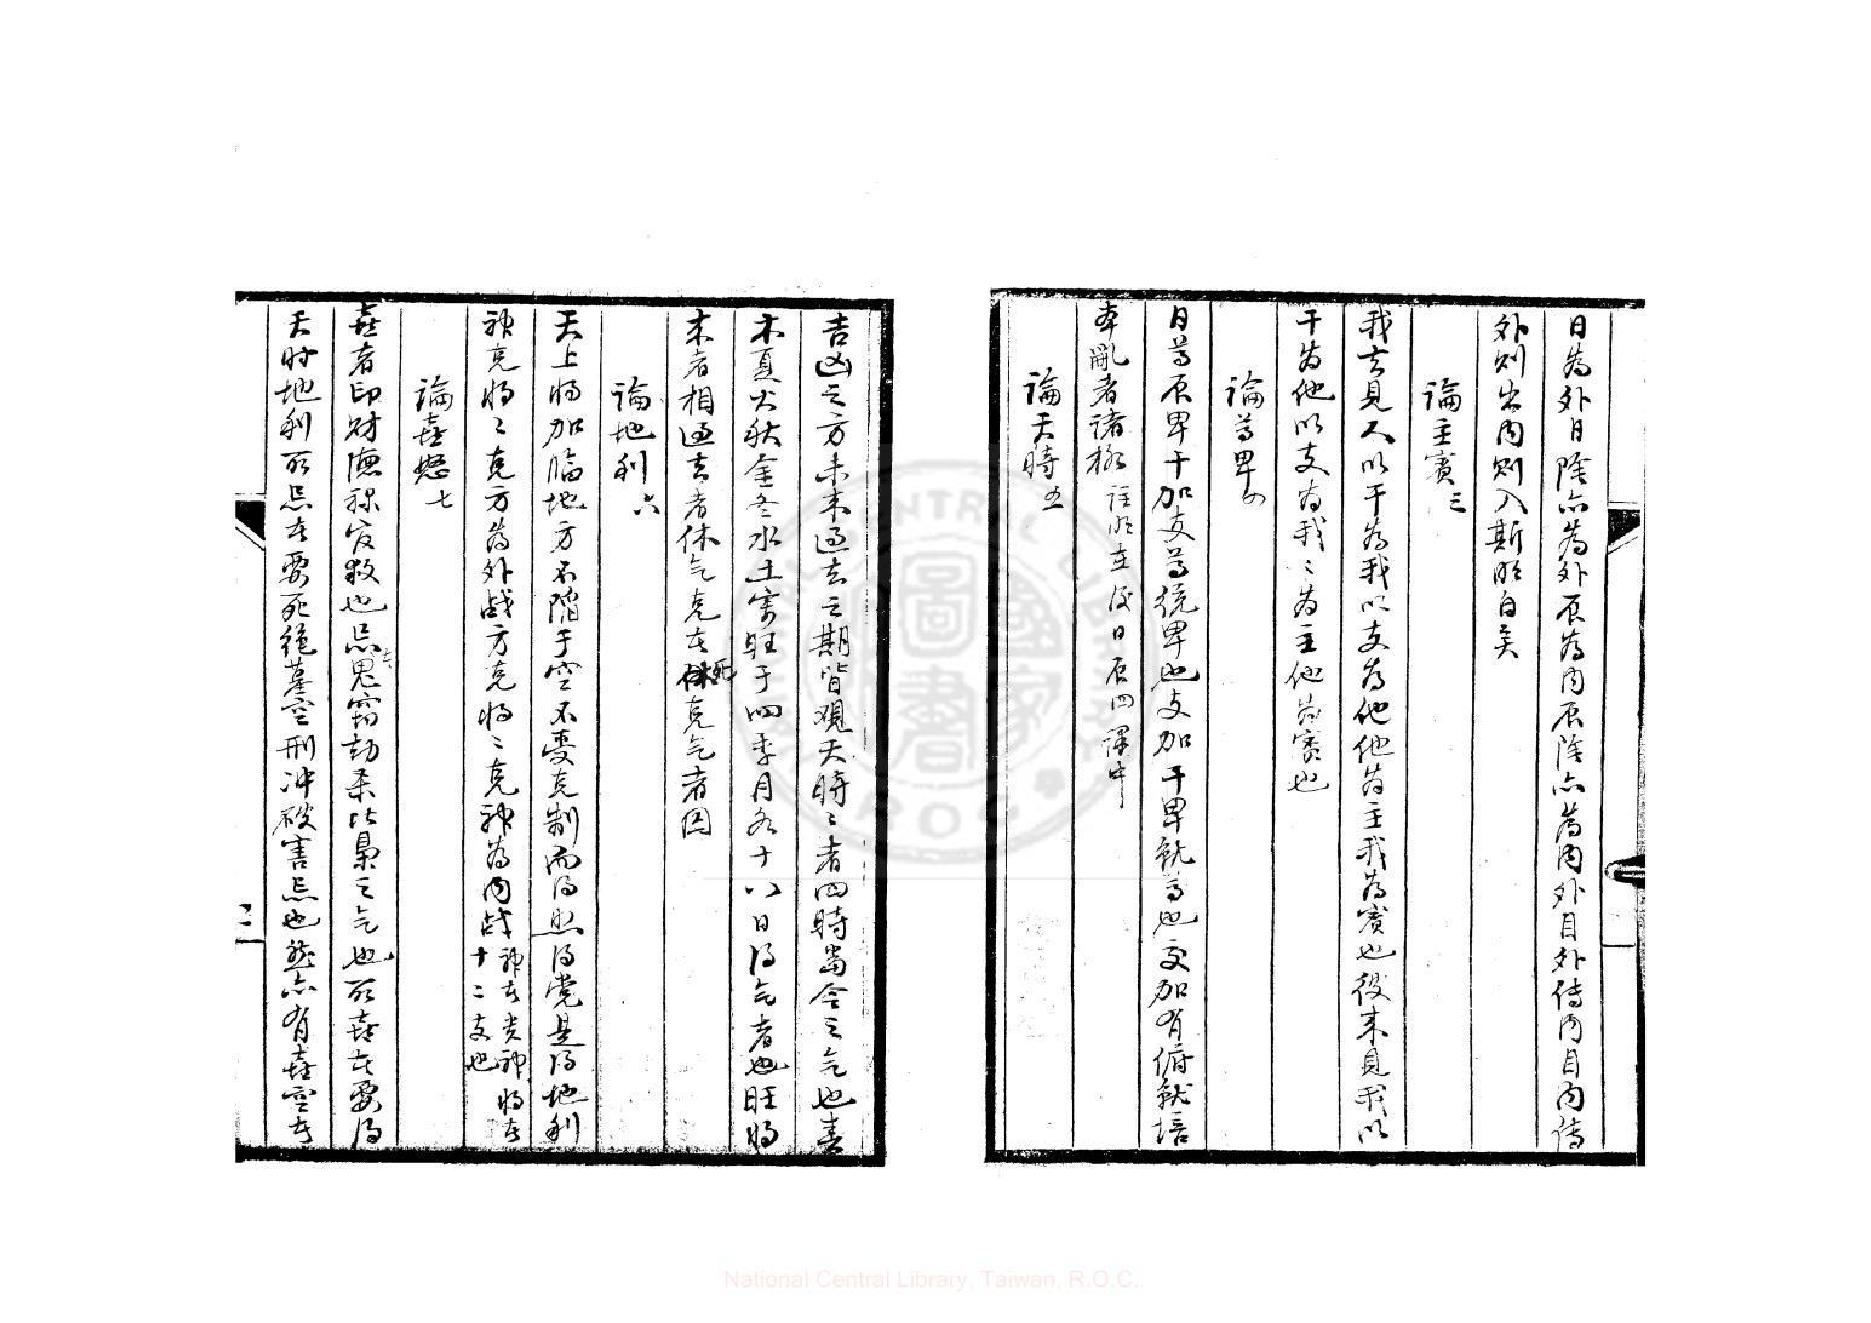 日為外日陰亦為外辰為内辰陰亦為内外自外傳内自内傳
外則出内則入斯明白矣
論主賓三
我去見人以干為我以支為他他為主我為賓也彼來見我以
干為他以支為我〻為主他為賓也
論尊卑四
日尊辰卑干加支尊統卑也支加干卑就尊也交加有俯就培
本亂者諸格註明在後日辰四課中
論天時五
吉凶之方未來過去之期皆觀天時〻者四時當令之氣也春
木夏火秋金冬水土寄旺于四季月各十八日得氣者也旺將
來者相過去者休氣克者死克氣者囚
論地利六
天上將加臨地方不陷于空不憂克制而得照得党是得地利
神克將〻克方為外战方克將〻克神為内战神者贵神將者
十二支也
論喜忌七
喜者印財德祿官救也忌者鬼窃劫杀比梟之气也所喜者要得
天时地利所忌者要死絶墓空刑冲破害忌也然亦有喜空者
National Central Library, Taiwan, R.O.C.